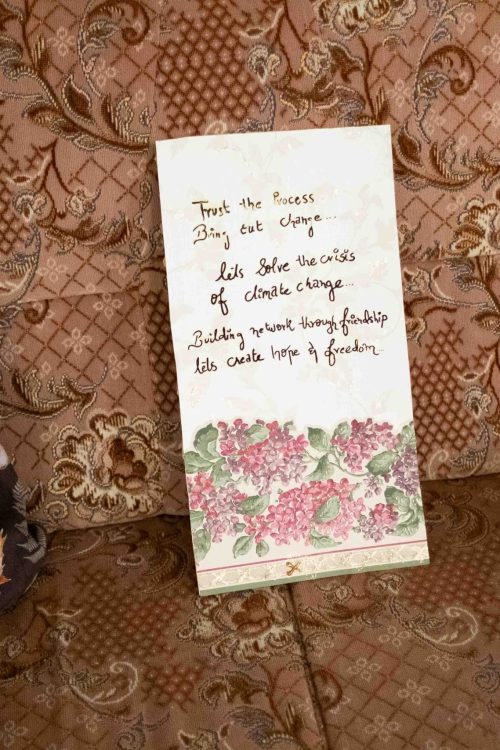 Trust the Process
Bring out change...
lets Solve the crisis
of climate change...
Building network through friendship
lets create hope & freedom..